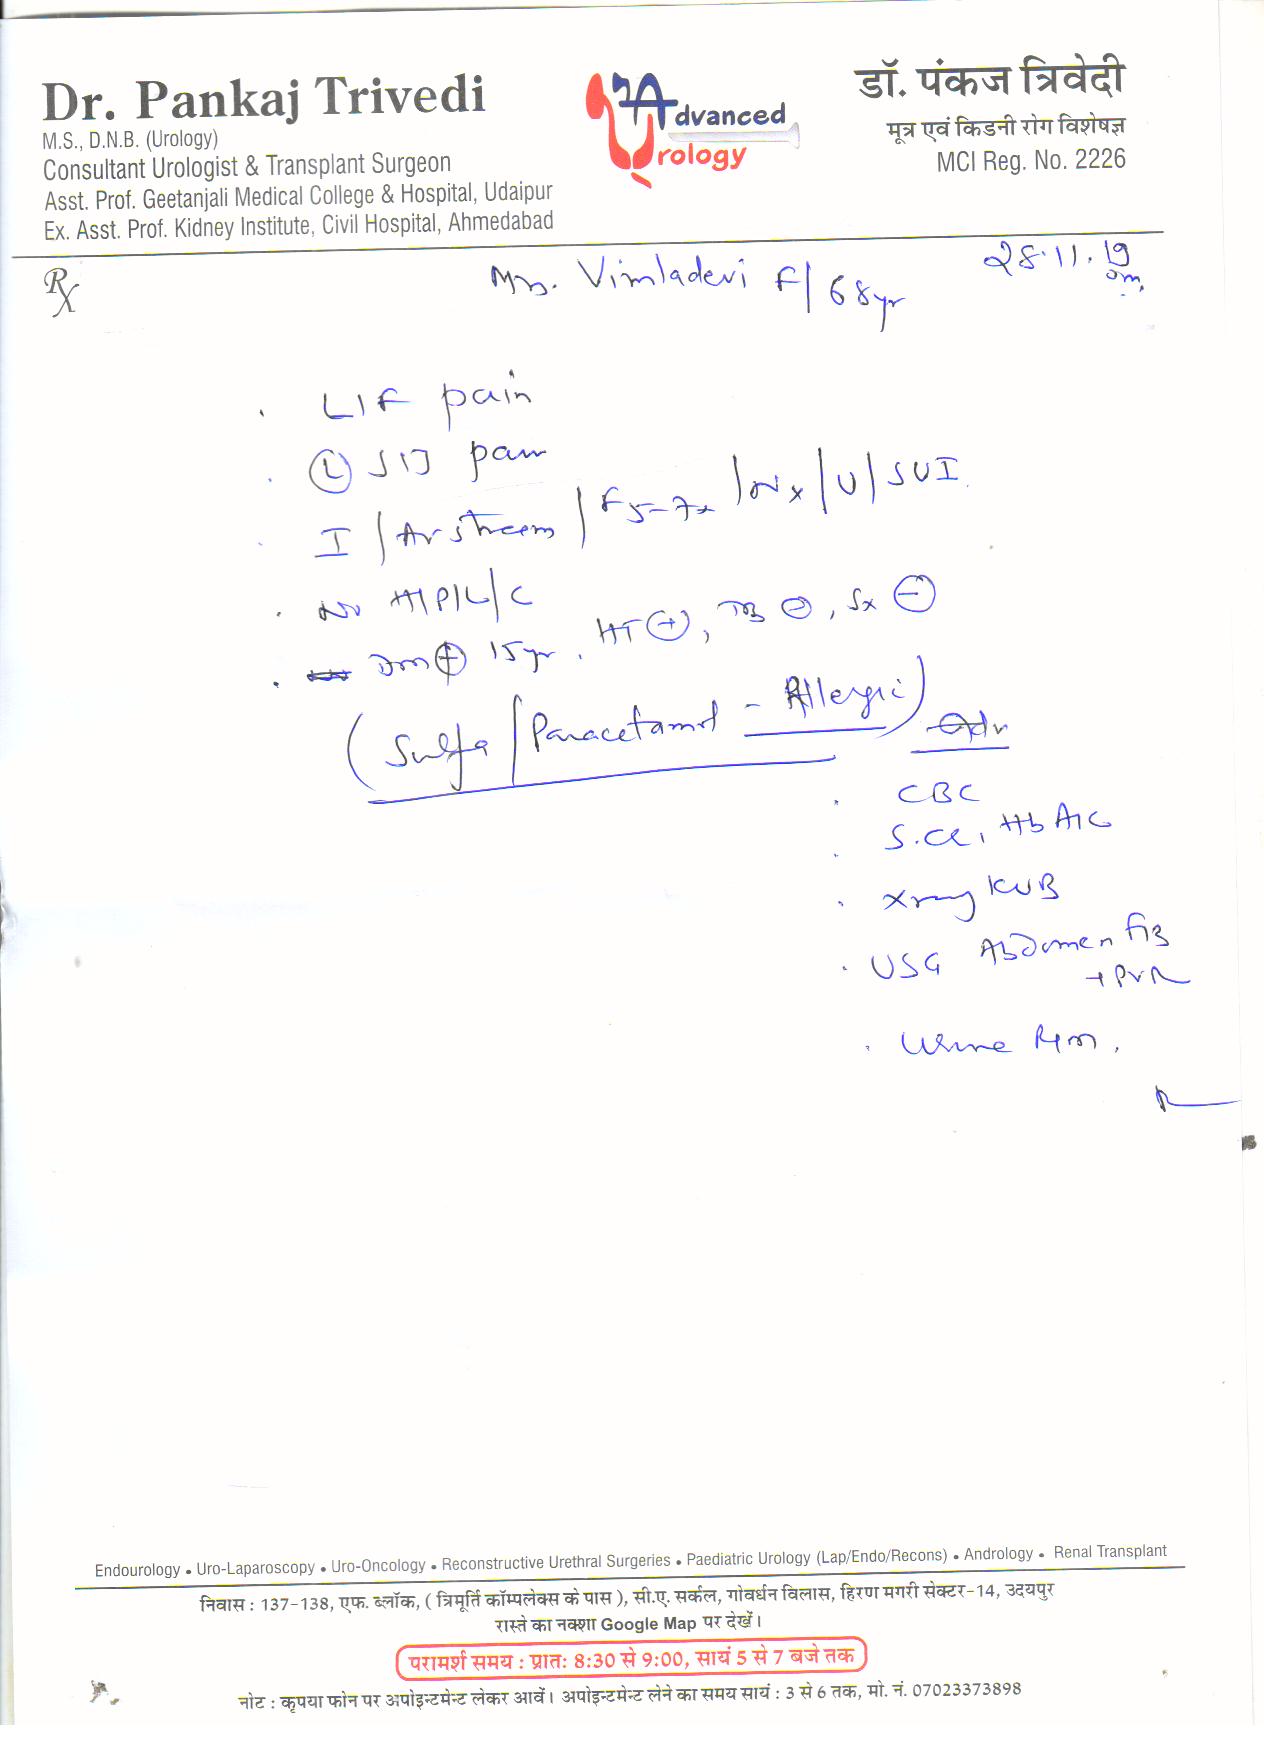 Dr. Pankaj Trivedi
M.S., D.N.B. (Urology)
Consultant Urologist & Transplant Surgeon
Asst. Prof. Geetanjali Medical College & Hospital, Udaipur
Ex. Asst. Prof. Kidney Institute, Civil Hospital, Ahmedabad
Advanced
Urology
डॉ. पंकज त्रिवेदी
मूत्र एवं किडनी रोग विशेषज्ञ
MCI Reg. No. 2226
Rx
28.11.19
Mrs. Vimladevi F/68yr
. LIF pain
. L SIJ pain
. I / Av stream / F5-7x / Nx / U / SUI
. No H/P/L/C
. Dm + 15yr. HT +, TB -, Sx -
(Sulfa / Paracetamol - Allergic)
Adv
. CBC
. S.Cr, HbA1C
. Xray KUB
. USG Abdomen FB
+ PVR
. Urine RM.
Endourology • Uro-Laparoscopy • Uro-Oncology • Reconstructive Urethral Surgeries • Paediatric Urology (Lap/Endo/Recons) • Andrology • Renal Transplant
निवास : 137-138, एफ. ब्लॉक, ( त्रिमूर्ति कॉम्पलेक्स के पास ), सी.ए. सर्कल, गोवर्धन विलास, हिरण मगरी सेक्टर-14, उदयपुर
रास्ते का नक्शा Google Map पर देखें।
परामर्श समय : प्रातः 8:30 से 9:00, सायं 5 से 7 बजे तक
नोट : कृपया फोन पर अपोइन्टमेन्ट लेकर आवें। अपोइन्टमेन्ट लेने का समय सायं : 3 से 6 तक, मो. नं. 07023373898